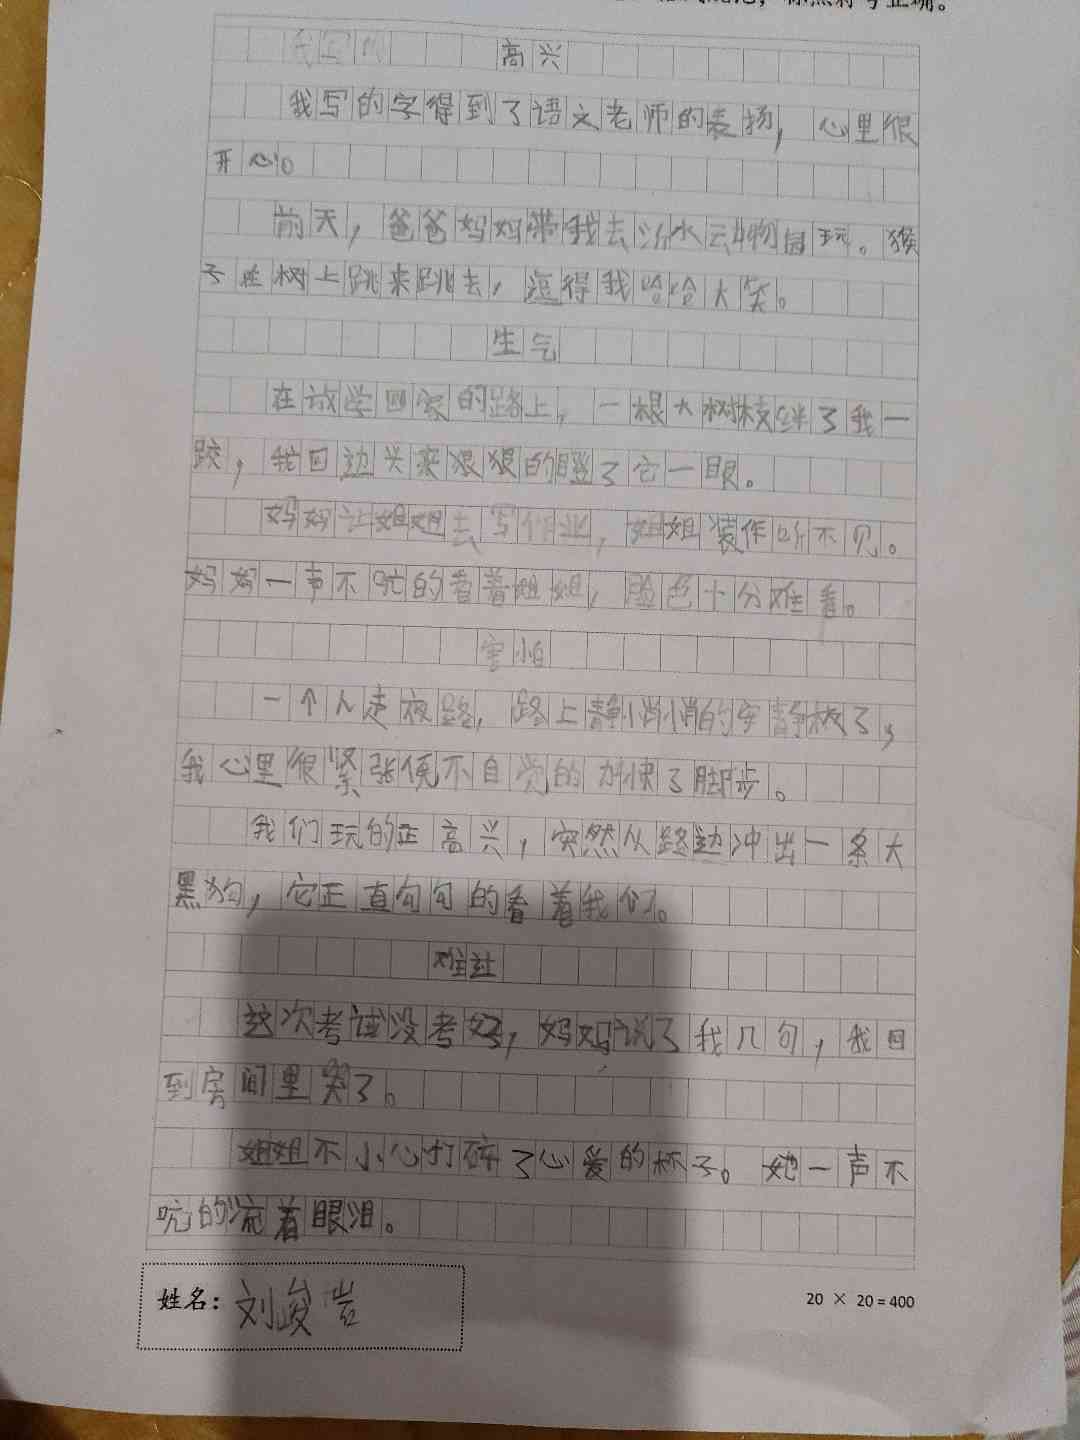 高兴
我写的字得到了语文老师的表扬，心里很
开心。
前天，爸爸妈妈带我去汾水动物园玩。猴
子在树上跳来跳去，逗得我哈哈大笑。
生气
在放学回家的路上，一根大树枝绊了我一
跤，我回过头来狠狠的瞪了它一眼。
妈妈让姐姐去写作业，姐姐装作听不见。
妈妈一声不吭的看着姐姐，脸色十分难看。
害怕
一个人走夜路，路上静悄悄的安静极了，
我心里很紧张便不自觉的加快了脚步。
我们玩的正高兴，突然从路边冲出一条大
黑狗，它正直勾勾的看着我们。
难过
这次考试没考好，妈妈说了我几句，我回
到房间里哭了。
姐姐不小心打碎了心爱的杯子。她一声不
吭的流着眼泪。
姓名：刘峻岩
20 × 20 = 400